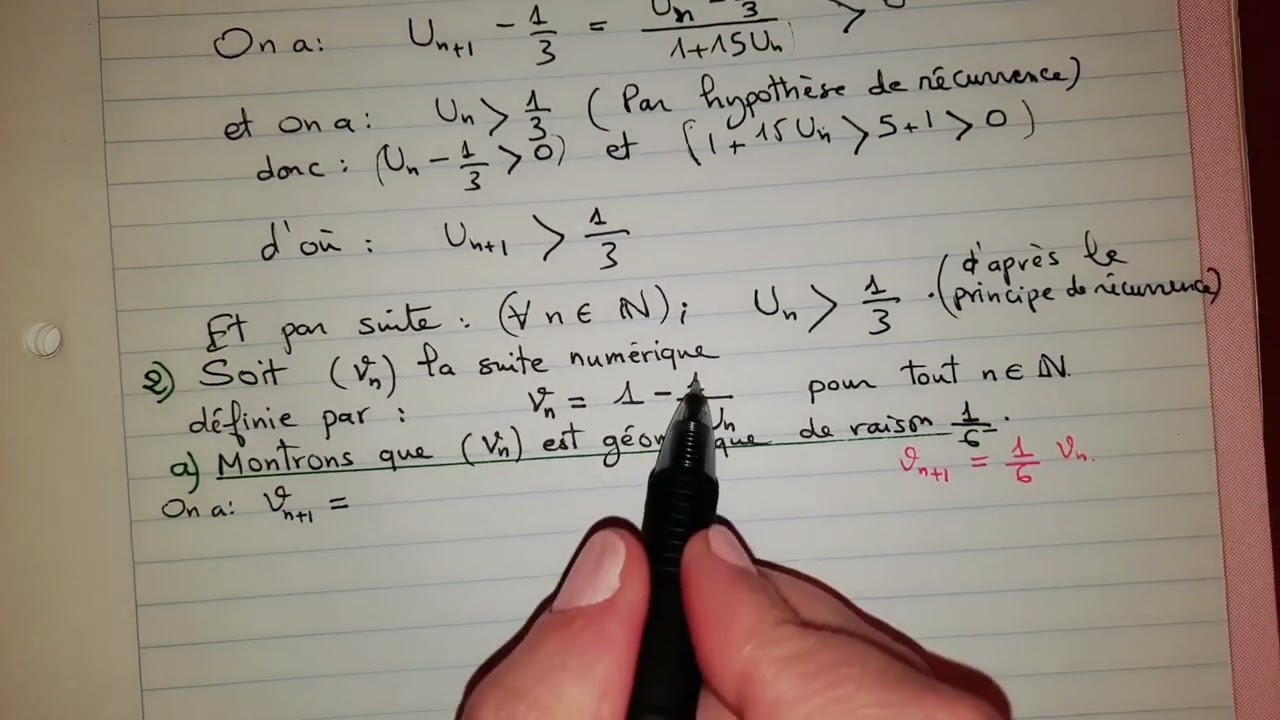 On a : U_{n+1} - 1/3 = (U_n - 1/3)/(1+15U_n) >
et on a : U_n > 1/3 (Par hypothèse de récurrence)
donc : (U_n - 1/3 > 0) et (1 + 15U_n > 5+1 > 0)
d'où : U_{n+1} > 1/3
Et par suite : (∀ n ∈ ℕ) ; U_n > 1/3 . (d'après le principe de récurrence)
2) Soit (v_n) la suite numérique
définie par : v_n = 1 - 1/U_n pour tout n ∈ ℕ.
a) Montrons que (v_n) est géométrique de raison 1/6 .
v_{n+1} = 1/6 v_n.
On a : v_{n+1} =